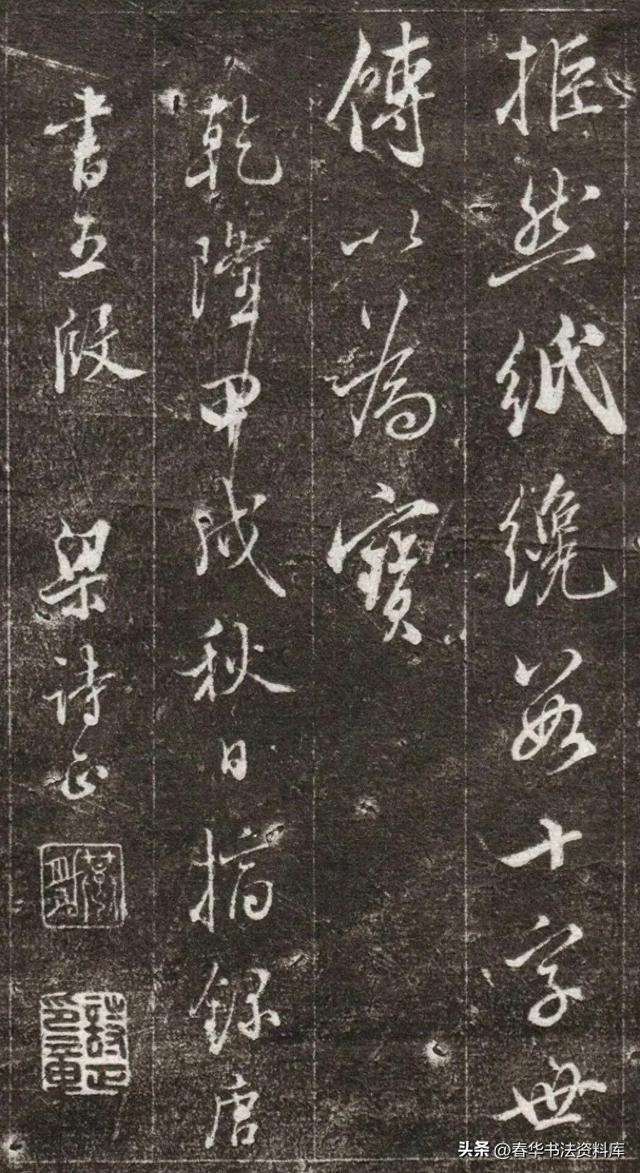 拒然紙纔數十字世
傳以為寶
乾隆甲戌秋日摘録唐
書五段 梁詩正
头条 @春华书法资料库